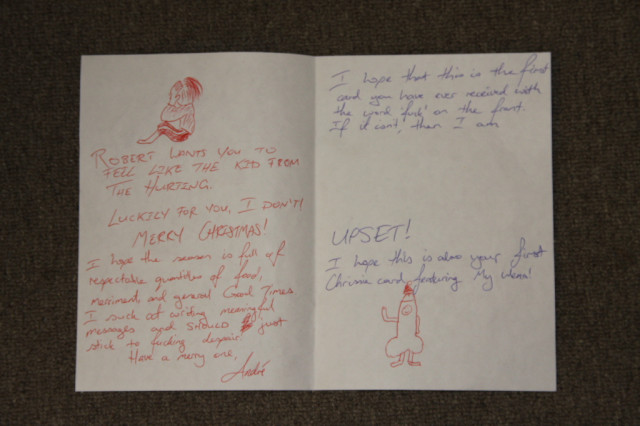 ROBERT WANTS YOU TO
FELL LIKE THE KID FROM
THE HURTING.
LUCKILY FOR YOU, I DON'T!
MERRY CHRISTMAS!
I hope the season is full of
respectable quantities of food,
merriment and general Good Times
I suck at writing meaningful
messages and SHOULD just
stick to fucking despair.
Have a merry one,
André
I hope that this is the first
card you have ever received with
the work 'fuck' on the front.
If it isn't, then I am
UPSET!
I hope this is also your first
Chrissie card featuring My Weena!